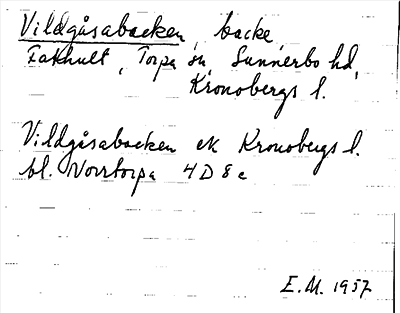 Vildgåsabacken, backe
Fakhult, Torpa sn, Sunnerbo hd,
Kronobergs l.
Vildgåsabacken ek Kronobergs l.
bl. Norrtorpa 4D8e
E.M. 1957